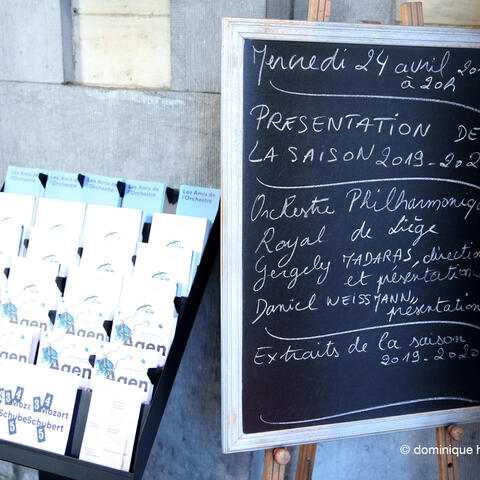 Mercredi 24 avril
à 20h
PRESENTATION DE
LA SAISON 2019-202
Orchestre Philharmoniq
Royal de Liège
Gergely MADARAS, direction
et présentation
Daniel WEISSMANN, présentation
Extraits de la saison
2019-2020
Les Amis de l'Orchestre
Les Amis de l'Orchestre
Agen
Agen
Agen
Mozart
Schubert
© dominique h